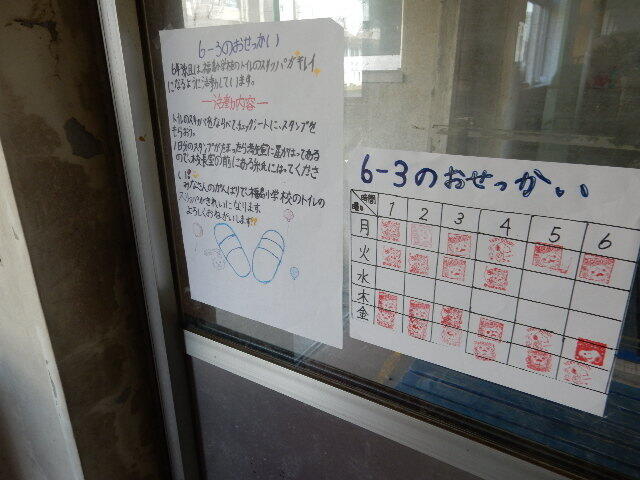 6-3のおせっかい
6年3組は、福島小学校のトイレのスリッパがキレイ
になるように活動しています。
ー活動内容ー
トイレのスリッパを並べて、チェックシートに、スタンプを
もらおう。
1日分のスタンプがたまったら
ので、
ください
みなさんのがんばりで、福島小学校のトイレの
スリッパがきれいになります
よろしくおねがいします!!
6-3のおせっかい
時間
曜日
1 2 3 4 5 6
月
火
水
木
金